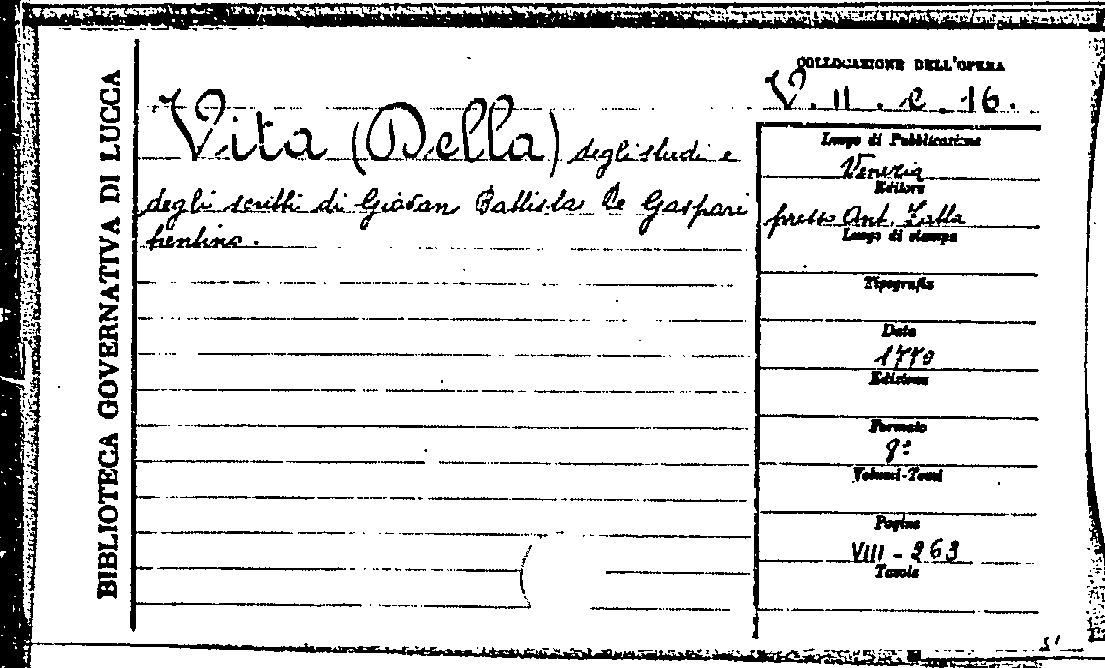 BIBLIOTECA GOVERNATIVA DI LUCCA
COLLOCAZIONE DELL'OPERA
V. II. e. 16.
Vita (Della) degli studi e
degli scritti di Giovan Battista De Gaspari
trentino.
Luogo di Pubblicazione
Venezia
Editore
presso Ant. Zatta
Luogo di stampa
Tipografia
Data
1770
Edizione
Formato
8º
Volumi-Tomi
Pagine
VIII - 263
Tavole